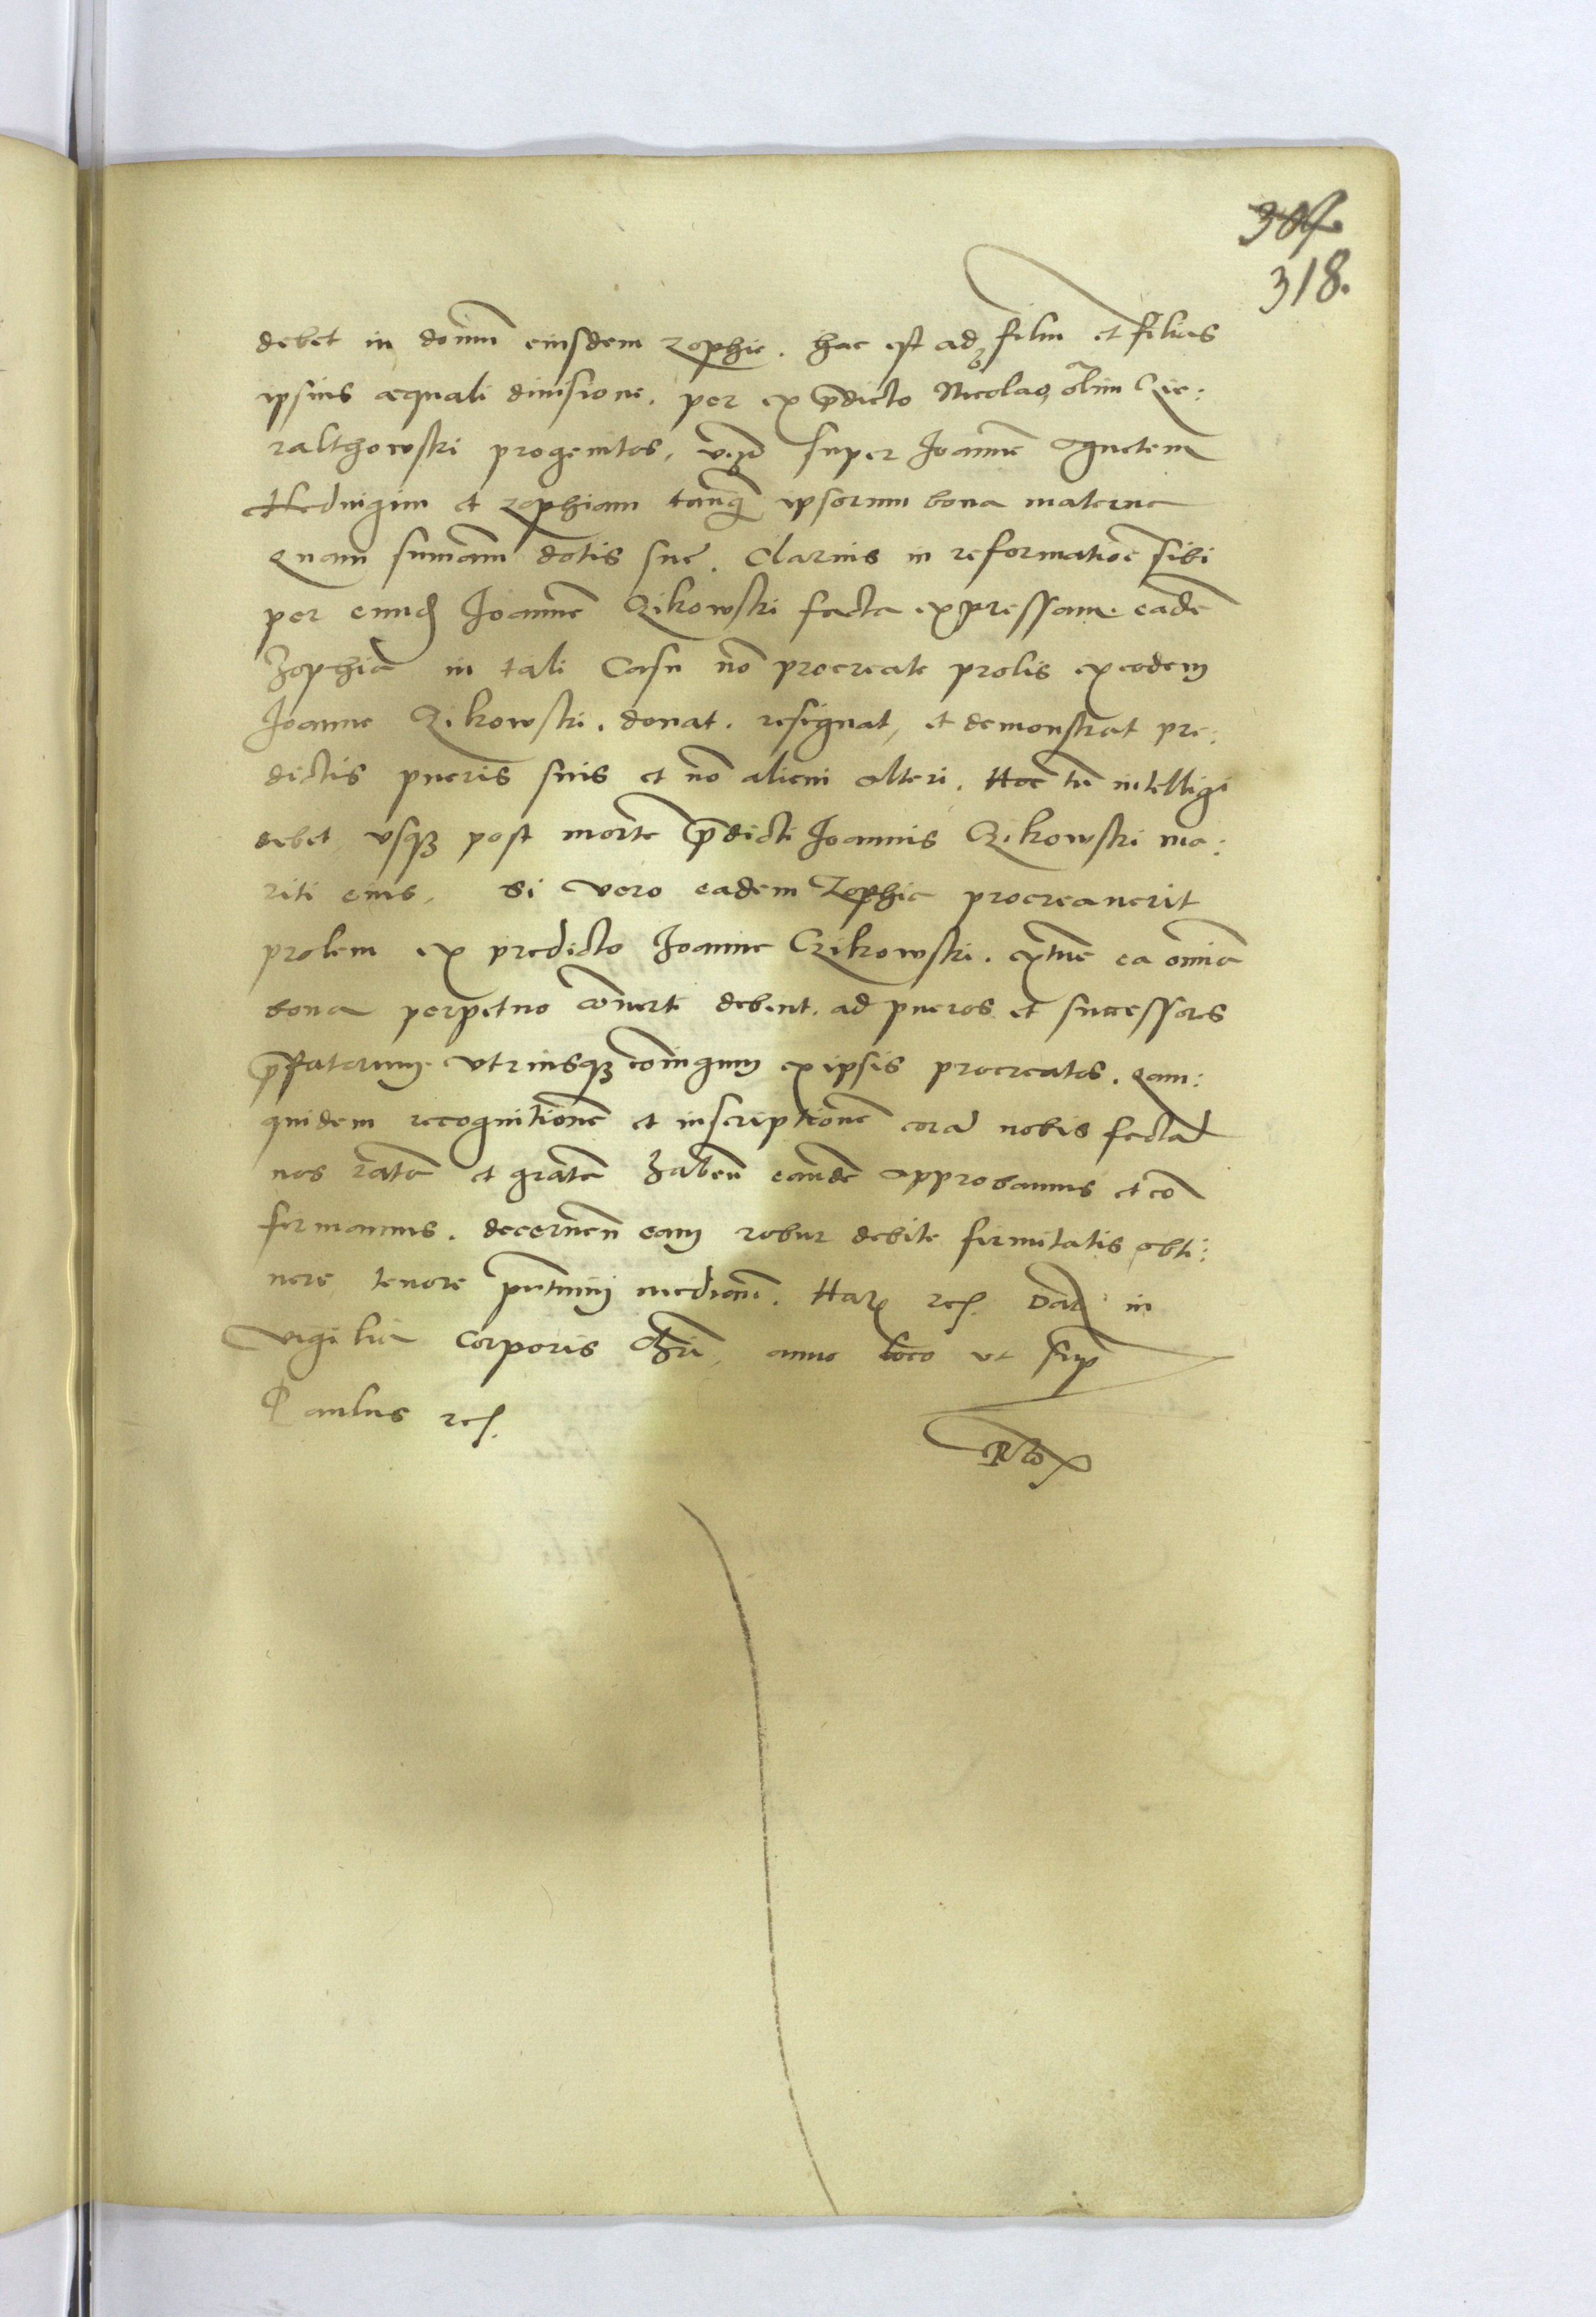 318.
debet in domum eiusdem Zophie. hac est ad filiu et filias
ipsius æquali diuisione. per ex p̄dicto Nicolao olim Cie:
ralthowski progenitos, super Joannē Agnetem
Heduigim et Zophiam tanq̄ ipsorum bona materna
Quam sumām dotis sue. Clarius in reformatiōe sibi
per eund Joannē Czikowski facta expressam. eadē
Zophia in tali Casu nō procreate prolis ex eodem
Joanne Czikowski. donat. resignat, et demonstrat pre:
dictis pueris suis et nō alicui alteri. Hoc tn̄ intelligi
debet, vsqz post mortē p̄dicti Joannis Czikowski ma:
riti eius, Si vero eadem Zophia procreauerit
prolem ex predicto Joanne Czikowski. extunc ea omnia
bona perpetuo cōuerti debent. ad pueros et successores
p̄fatorum vtriusqz coniugum ex ipsis procreatos. Quam:
quidem recognitionē et inscriptionē corā nobis factā
nos ratā et gratā haben̄ eandē approbamus et cō
firmamus. decernen̄ eam robur debite firmitatis obti:
nere tenore pn̄tium median̄. Harū res. Dat in
vigilia Corporis Chri, anno loco vt supr
Paulus res.